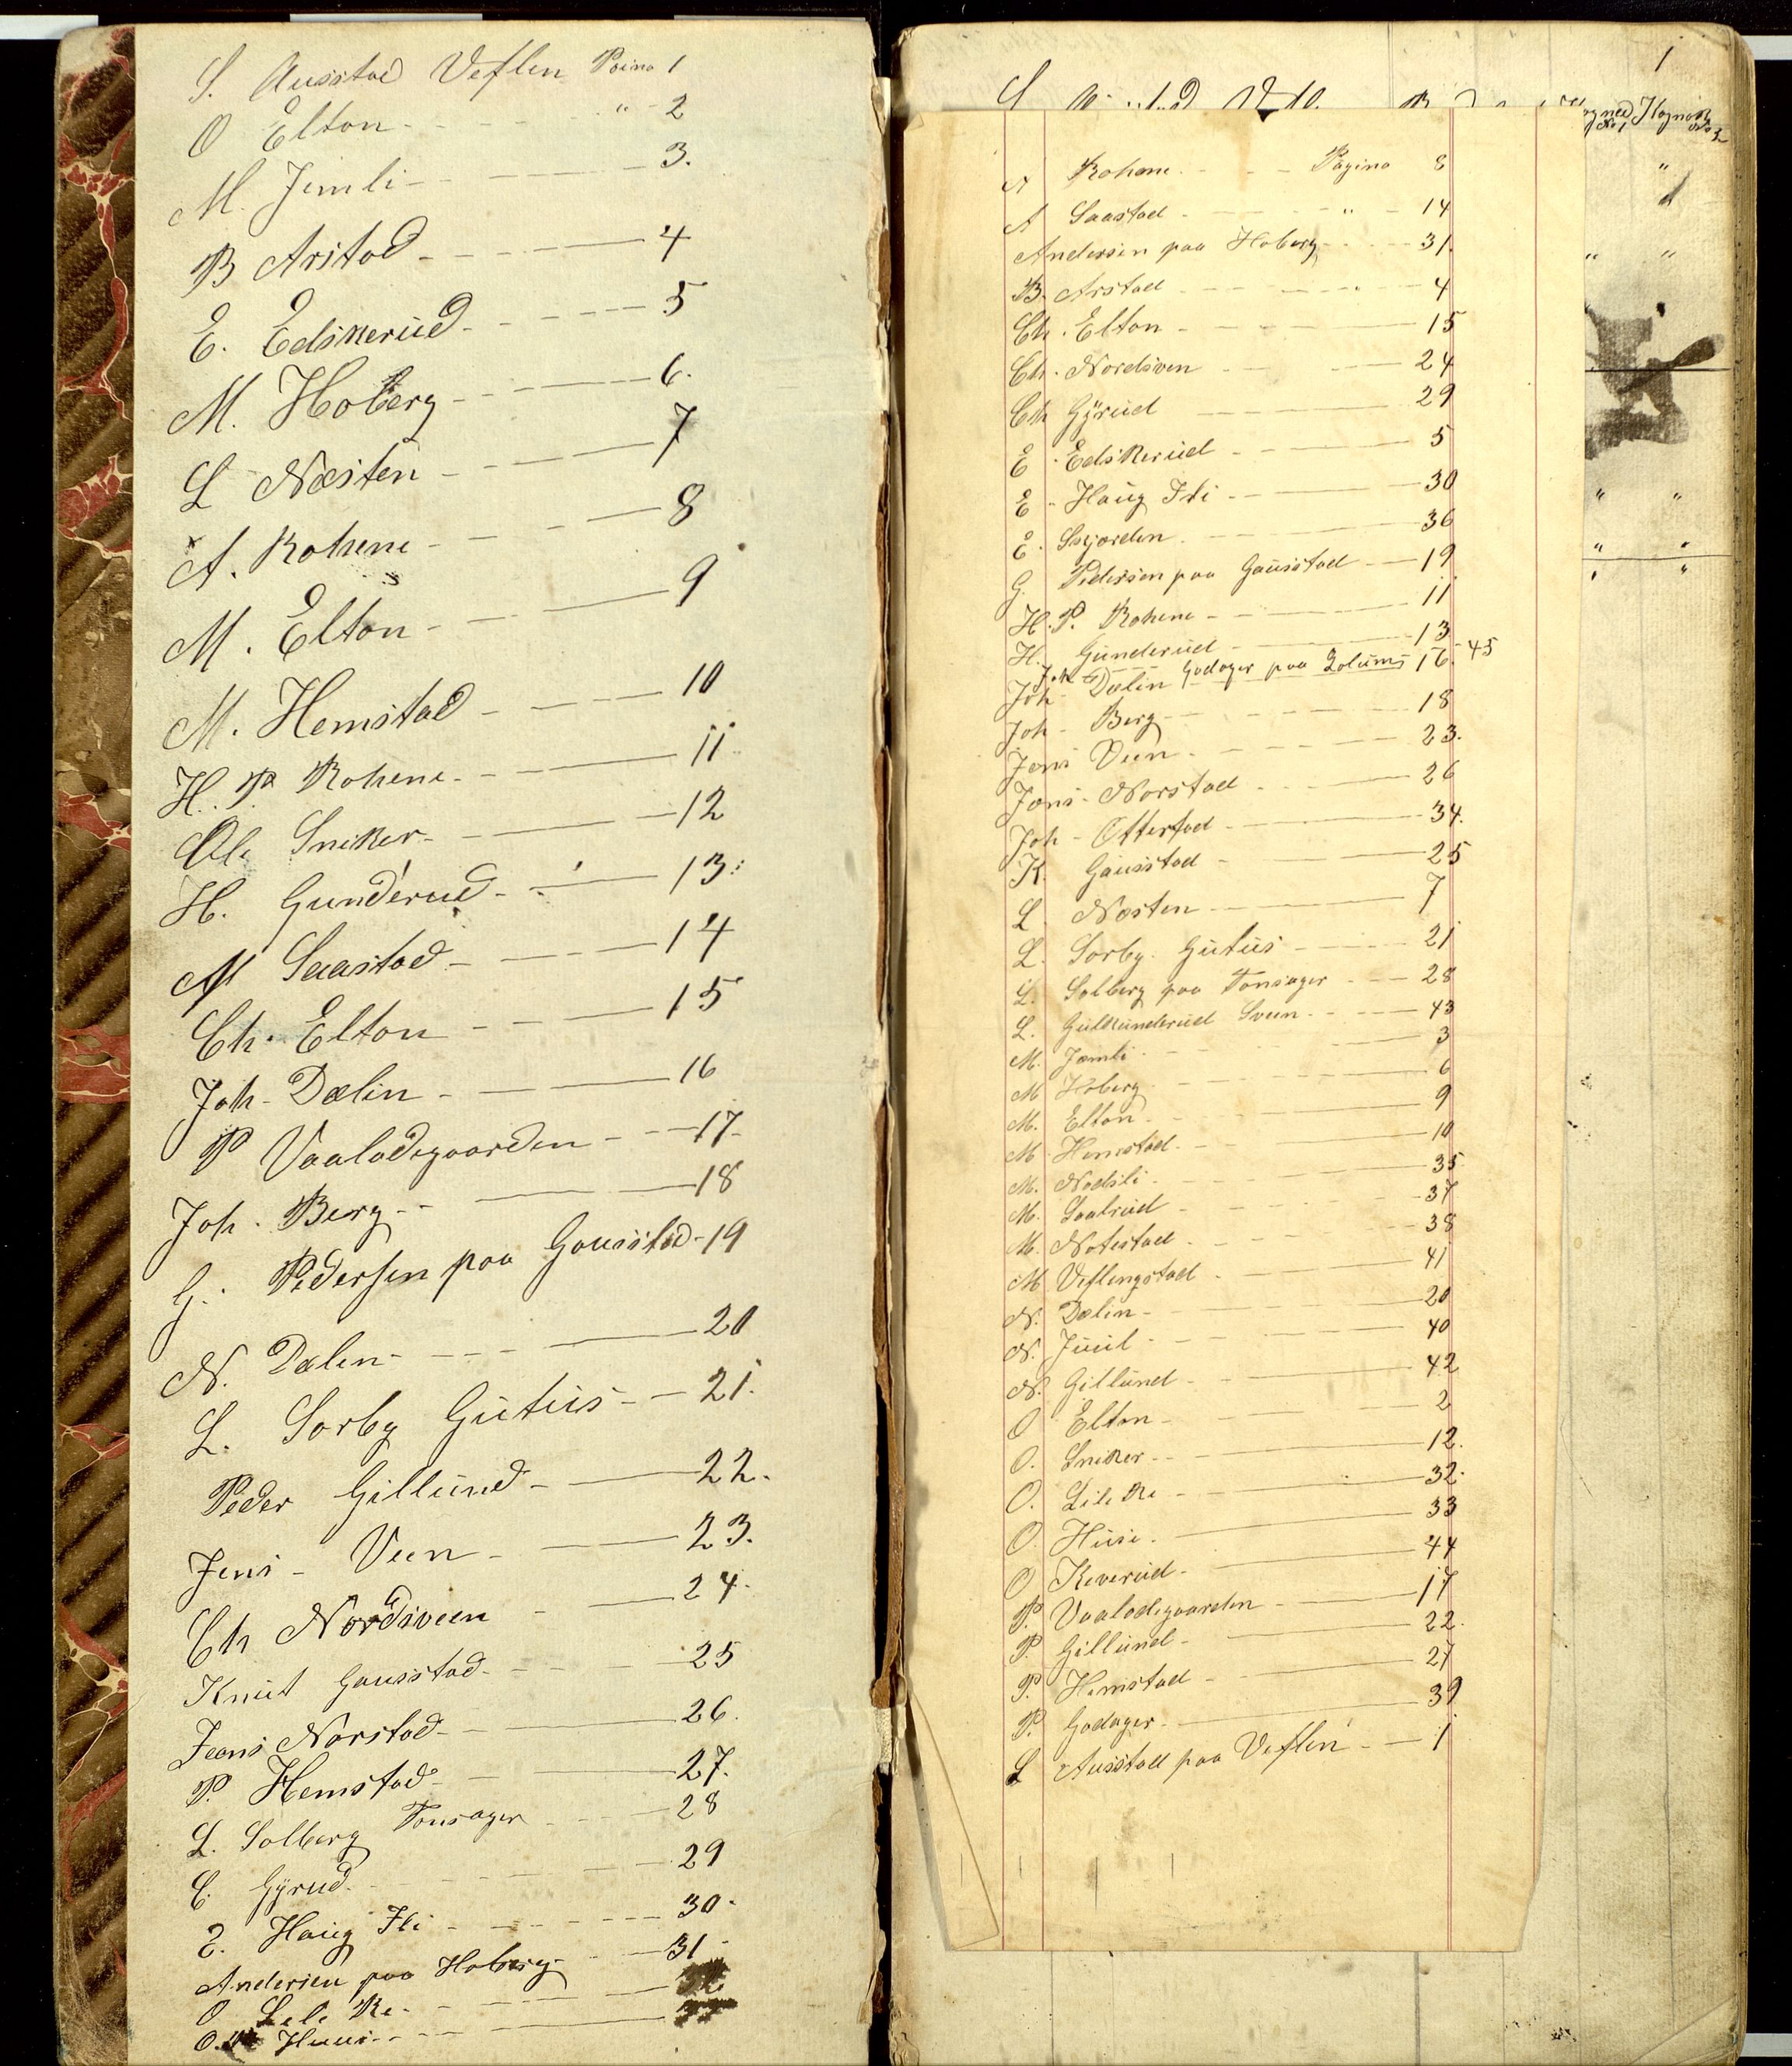 S. Ausstad Veflen Poina 1
O Elton " 2
M. Jemli 3.
B Arstad 4
E. Edskerud 5
M. Hoberg 6.
L Næsten 7
A. Rohene 8
M. Elton 9
M. Hemstad 10
H. P. Rohene 11
Ole Sneker 12
H. Gunderud 13
A Saastad 14
Ch. Elton 15
Joh. Dælin 16
P Vaalodegaarden 17
Joh. Berg 18
G. Pedersen paa Gausstad 19
N. Dælen 20
L. Sorby Gutuis 21.
Peder Gillund 22.
Jens Veen 23.
Ch Nordsveen 24.
Knut Gausstad 25
Jens Norstad 26.
P. Hemstad 27.
L. Solberg Tonsager 28
C. Gÿrud 29
E. Haug Fli 30.
Andersen paa Hoberg 31
O Lele Re
O. Huus
1
S
A Rohene Pagina 8
A Saastad " 14
Andersen paa Hoberg 31.
B. Arstad 4
Ch. Elton 15
Ch. Nordsven 24
Ch Gÿrud 29
E Edskerud 5
E Haug Fli 30
E. Sugarden 36
G. Pedersen paa Gausstad 19
H. P. Rohene 11
H. Gunderud 13
Joh G Godager paa Lolums 45
Joh Dælin 16
Joh Berg 18
Jens Veen 23.
Jens Norstad 26
Joh Ottestad 34.
K. Gausstad 25
L Næsten 7
L. Sorby Gutuis 21
L. Solberg paa Tonsager 28
L. Gulkunderud Sveen 43
M. Jemli 3
M Hoberg 6
M. Elton 9
M Hemstad 10
M. Nodsli 35
M. Saalrud 37
M. Notestad 38
M Veflingstad 41
N. Dælin 20
N. Juul 40
N. Gillund 42
O Elton 2
O. Sneker 12.
O. Lile Re 32.
O. Huse 33
O Keverud 44
P. Vaalodegaarden 17
P. Gillund 22.
P. Hemstad 27
P. Godager 39
S Ausstad paa Veflen 1